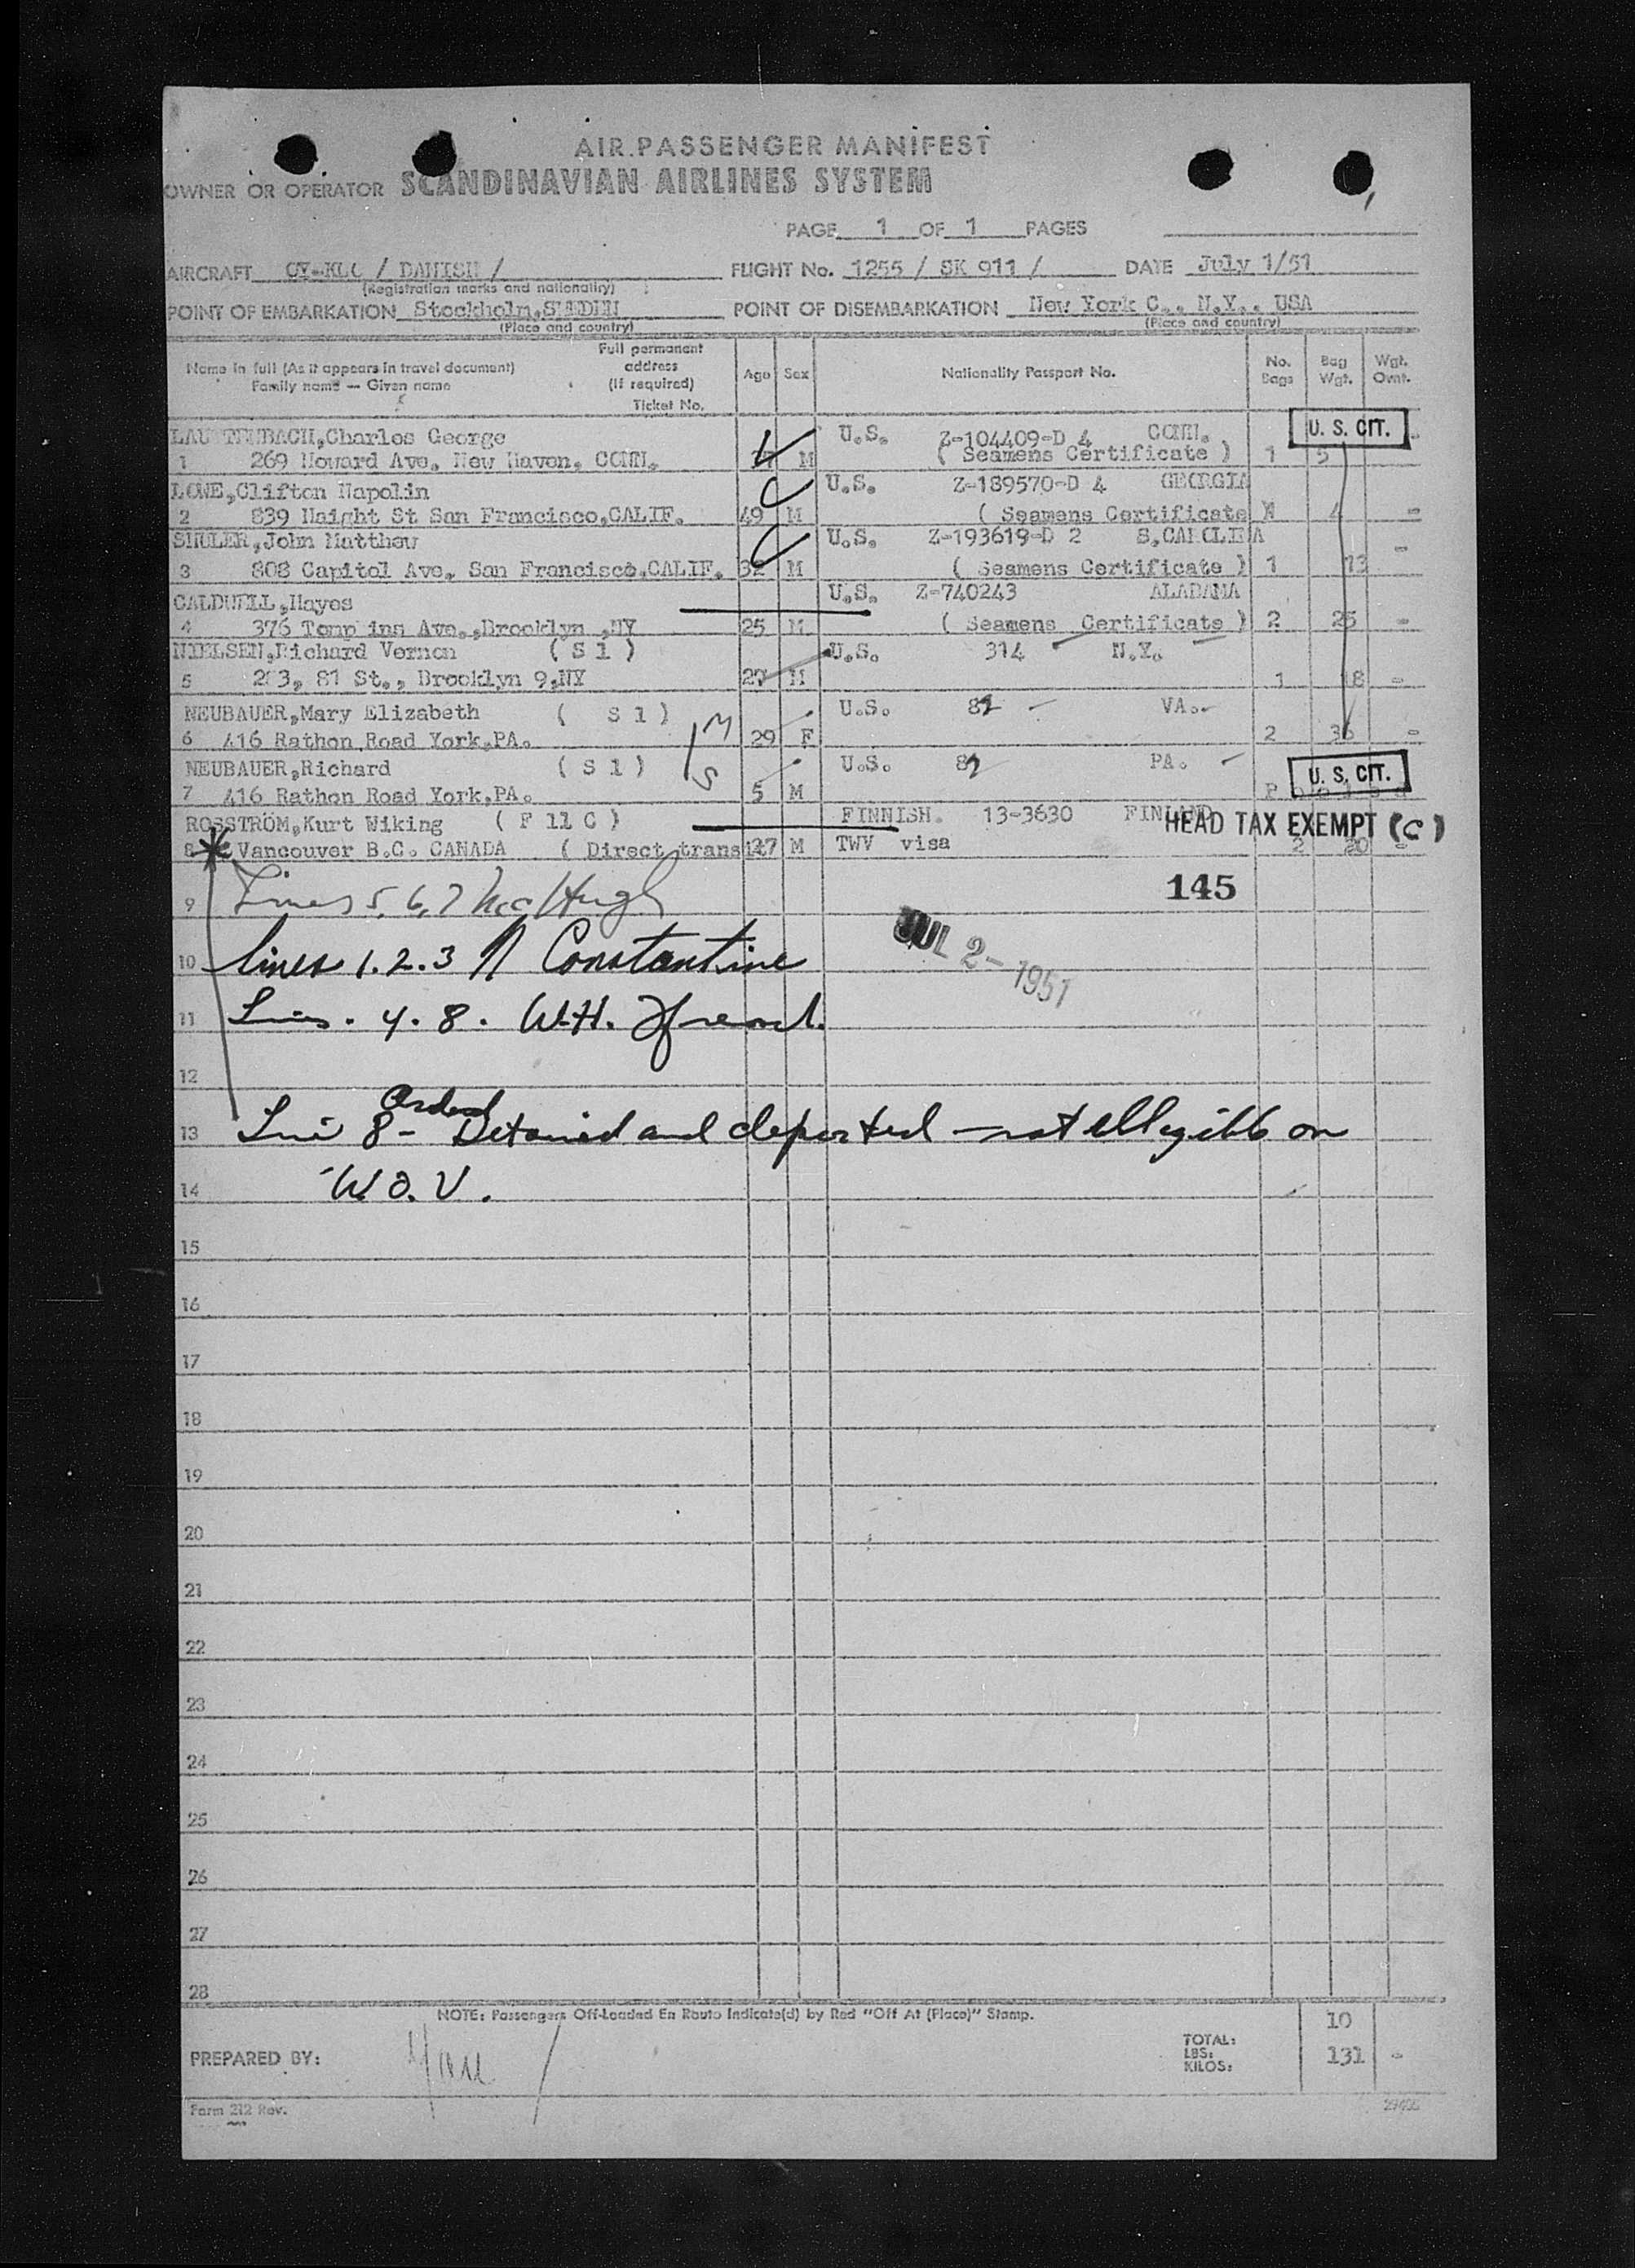 AIR PASSENGER MANIFEST
OWNER OR OPERATOR SCANDINAVIAN AIRLINES SYSTEM
PAGE 1 OF 1 PAGES
AIRCRAFT / DANISH / FLIGHT No. 1255 / SK 911 / DATE July 1/51
(Registration marks and nationality)
POINT OF EMBARKATION Stockholm, SWEDEN POINT OF DISEMBARKATION New York C., N.Y., USA
(Place and country) (Place and country)
Name in full (As it appears in travel document) Family name — Given name Full permanent address (If required) Ticket No. Age Sex Nationality Passport No. No. Bags Bag Wgt. Wgt. Ovrt.
Charles George U.S. Z-104409-D 4 CONN. U. S. CIT. -
1 269 Howard Ave, New Haven, CONN. M ( Seamens Certificate ) 1 5
LOWE,Clifton Napolin U.S. Z-189570-D 4 GEORGIA
2 839 Haight St San Francisco,CALIF. 49 M ( Seamens Certificate 4 -
SHULER,John Matthew U.S. Z-193619-D 2 S,CAROLINA
3 808 Capitol Ave, San Francisco,CALIF. 32 M ( Seamens Certificate ) 1 13 -
CALDWELL,Hayes U.S. Z-740243 ALABAMA
4 376 Ave.,Brooklyn ,NY 25 M ( Seamens Certificate ) 2 25 -
NIELSEN,Richard Vernon ( S 1 ) U.S. 314 N.Y.
5 St., Brooklyn 9,NY M 1 18 -
NEUBAUER,Mary Elizabeth ( S 1 ) U.S. VA.
6 416 Rathon Road York,PA. M 29 F 2 36 -
NEUBAUER,Richard ( S 1 ) S U.S. PA. U. S. CIT.
7 416 Rathon Road York,PA. 5 M
ROSSTRÖM,Kurt Wiking ( F 11 C ) FINNISH. 13-3630 FINLAND HEAD TAX EXEMPT (C)
8 Vancouver B.C. CANADA ( Direct transit 27 M TWV visa 2 20 -
9 Lines 5, 6, 7 McHugh 145
JUL 2 - 1951
10 lines 1. 2. 3 Constantine
11 Lines. 4. 8. W.H.
12
Ordered
13 Line 8 - Detained and deported - not elligible on
14 W.O.V.
15
16
17
18
19
20
21
22
23
24
25
26
27
28
NOTE: Passengers Off-Loaded En Route Indicate(d) by Red "Off At (Place)" Stamp.
10
PREPARED BY: TOTAL: LBS: KILOS: 131 -
Form 212 Rev.